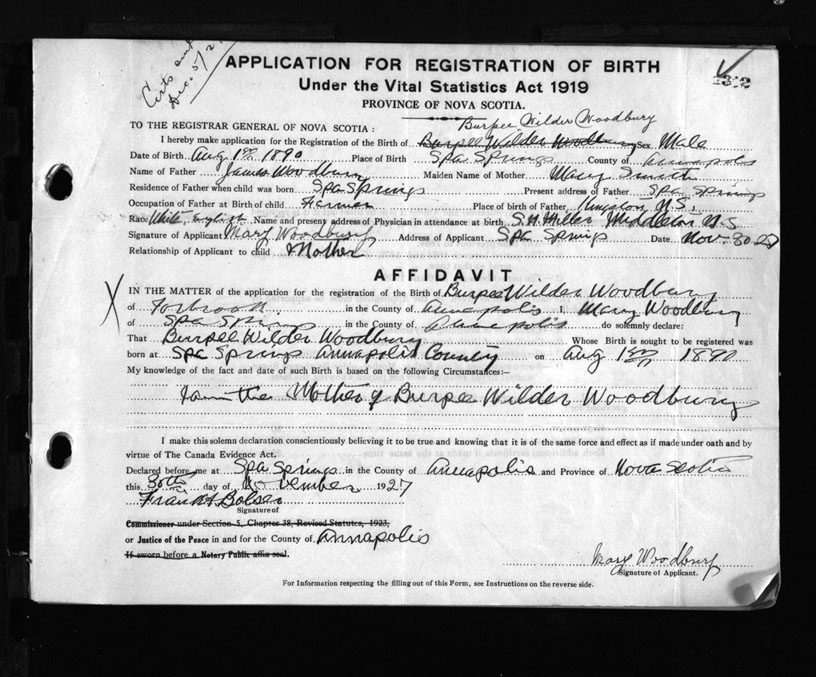 Certs and
Dec. 5/27
APPLICATION FOR REGISTRATION OF BIRTH
Under the Vital Statistics Act 1919
PROVINCE OF NOVA SCOTIA.
Burpee Wilder Woodbury
TO THE REGISTRAR GENERAL OF NOVA SCOTIA :
I hereby make application for the Registration of the Birth of Burpee Wilder Woodbury Sex Male
Date of Birth Aug 1st 1890 Place of Birth Spa Springs County of Annapolis
Name of Father James Woodbury Maiden Name of Mother Mary Smith
Residence of Father when child was born Spa Springs Present address of Father Spa Springs
Occupation of Father at Birth of child Farmer Place of birth of Father Kingston N.S.
Race White, English Name and present address of Physician in attendance at birth S.N. Miller Middleton N.S
Signature of Applicant Mary Woodbury Address of Applicant Spa Springs Date Nov. 30 27
Relationship of Applicant to child Mother
AFFIDAVIT
X
IN THE MATTER of the application for the registration of the Birth of Burpee Wilder Woodbury
of Torbrook in the County of Annapolis I, Mary Woodbury
of Spa Springs in the County of Annapolis do solemnly declare:
That Burpee Wilder Woodbury Whose Birth is sought to be registered was
born at Spa Springs Annapolis County on Aug 1st 1890
My knowledge of the fact and date of such Birth is based on the following Circumstances:—
I am the Mother of Burpee Wilder Woodbury
I make this solemn declaration conscientiously believing it to be true and knowing that it is of the same force and effect as if made under oath and by
virtue of The Canada Evidence Act.
Declared before me at Spa Springs in the County of Annapolis and Province of Nova Scotia
this 30th day of November 1927
Frank H Bolser
Signature of
Commissioner under Section 5, Chapter 38, Revised Statutes, 1923,
or Justice of the Peace in and for the County of Annapolis
If sworn before a Notary Public affix seal.
Mary Woodbury
Signature of Applicant.
For Information respecting the filling out of this Form, see Instructions on the reverse side.